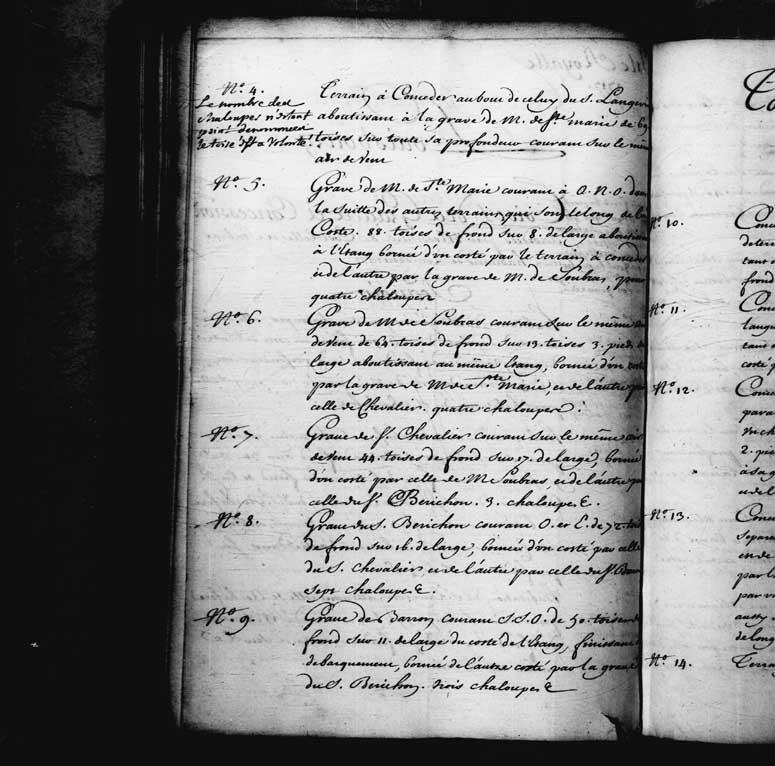 N.º 4.
Le nombre des
chaloupes n'estant
point denommées
le toise est a Volonté
Terrain à Conceder au bout de celuy du S. Languer
aboutissant à la grave de M. de Ste marie de 69
toises sur toute sa profondeur courant sur le même
air de Vent
N.º 5.
Grave de M. de Ste Marie courant à O. N. O. dans
la suitte des autres terrains qui sont le long de la
Coste. 88. toises de frond sur 8. de large aboutissant
à l'Etang bornée d'un costé par le terrain à conceder
et de l'autre par la grave de M. de Soubras, pour
quatre chaloupes
N.º 6.
Grave de M. de Soubras courant sur le même
de Vent de 64. toises de frond sur 13. toises 3. pieds de
large aboutissant au même Etang, bornée d'un costé
par la grave de M. de Ste Marie, et de l'autre par
celle de Chevalier. quatre chaloupes.
N.º 7.
Grave de Sr. Chevalier courant sur le même air
de Vent 44. toises de frond sur 17. de large, bornée
d'un costé par celle de M. Soubras, et de l'autre par
celle du Sr. Berichon. 3. chaloupes.
N.º 8.
Grave du S. Berichon courant O. et E. de 72. toises
de frond sur 16. de large, bornée d'un costé par celle
du S. Chevalier, et de l'autre par celle du Sr.
Sept chaloupes.
N.º 9.
Grave de Barron courant S. S. O. de 50. toises de
frond sur 11. de large du costé de l'Etang, finissant
de barquement, bornée de l'autre costé par la grave
du S. Berichon. trois chaloupes
N.º 10.
N.º 11.
N.º 12.
2. pie
N.º 13.
N.º 14.
Terra